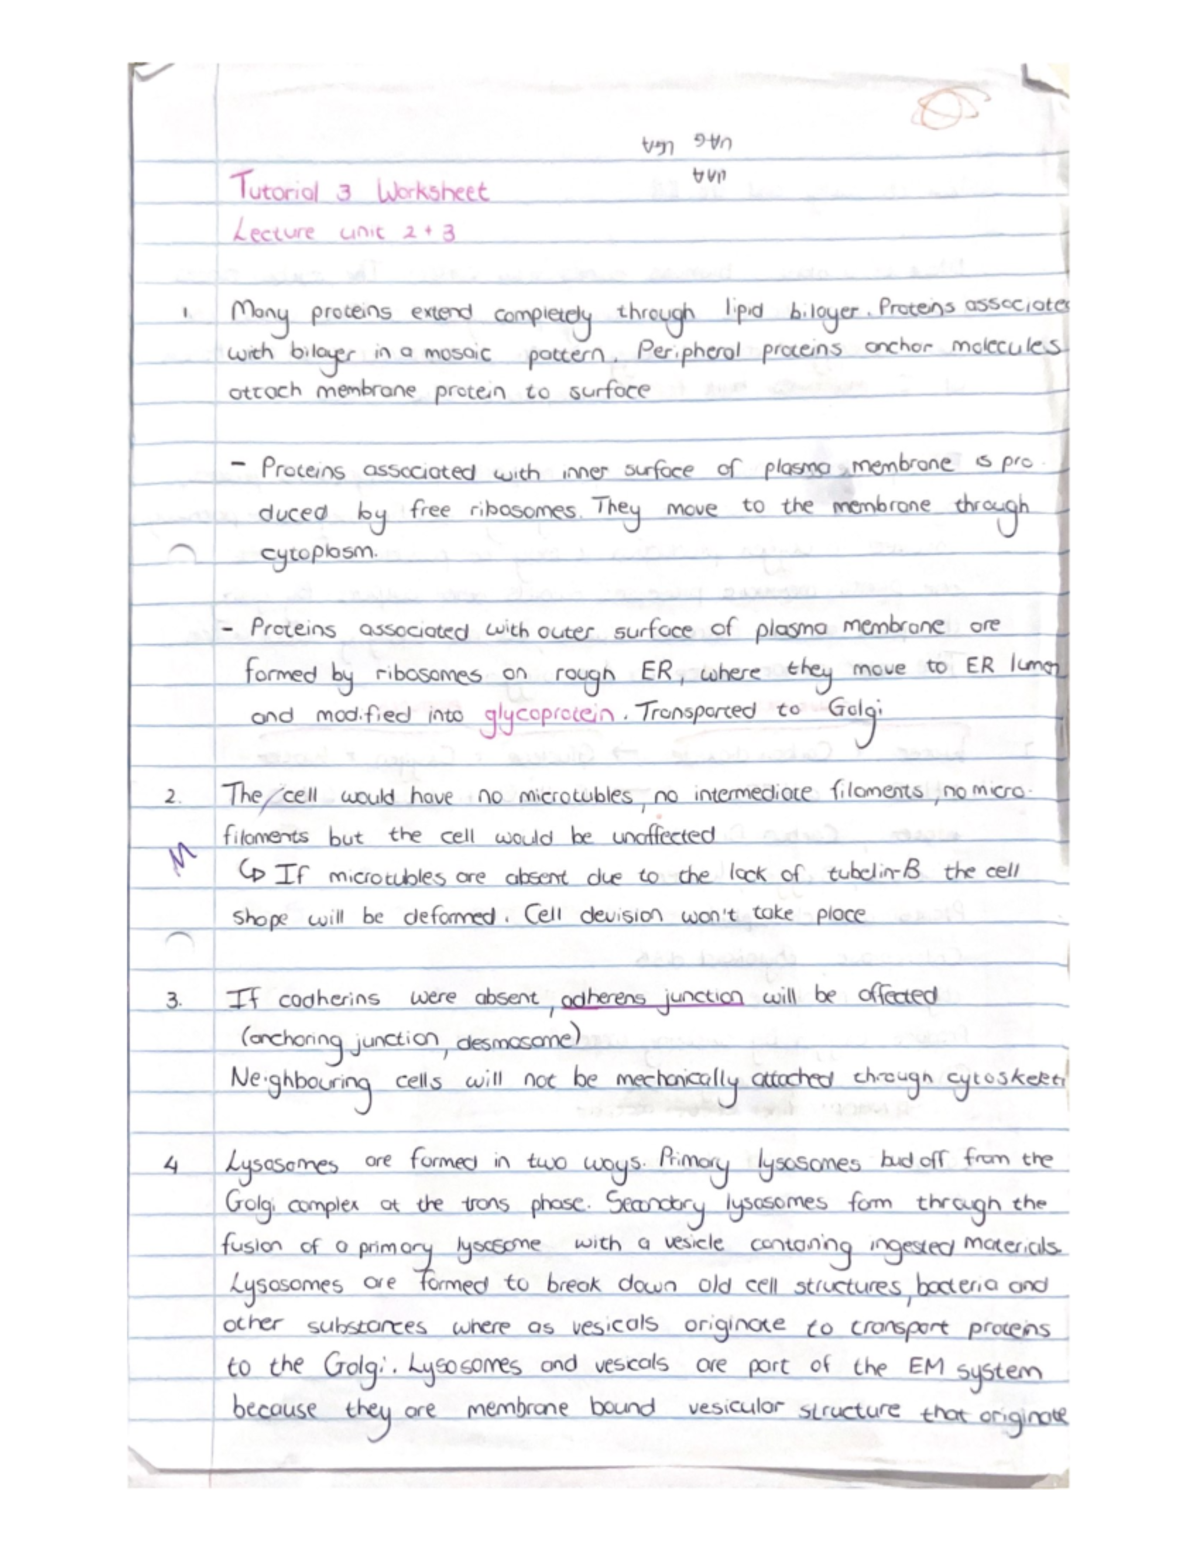 UAG UGA
UAA
Tutorial 3 Worksheet
Lecture unit 2 + 3
1. Many proteins extend completely through lipid bilayer. Proteins associated
with bilayer in a mosaic pattern. Peripheral proteins anchor molecules
attach membrane protein to surface
- Proteins associated with inner surface of plasma membrane is pro-
duced by free ribosomes. They move to the membrane through
cytoplasm.
- Proteins associated with outer surface of plasma membrane are
formed by ribosomes on rough ER, where they move to ER lumen
and modified into glycoprotein. Transported to Golgi
2. The cell would have no microtubles, no intermediate filaments, no micro-
filaments but the cell would be unaffected
↳ If microtubles are absent due to the lack of tubulin-B the cell
shape will be deformed. Cell devision won't take place
3. If cadherins were absent, adherens junction will be affected
(anchoring junction, desmosome)
Neighbouring cells will not be mechanically attached through
4 Lysosomes are formed in two ways. Primary lysosomes bud off from the
Golgi complex at the trans phase. Secondary lysosomes form through the
fusion of a primary lysosome with a vesicle containing ingested materials.
Lysosomes are formed to break down old cell structures, bacteria and
other substances where as vesicals originate to transport proteins
to the Golgi. Lysosomes and vesicals are part of the EM system
because they are membrane bound vesicular structure that originate